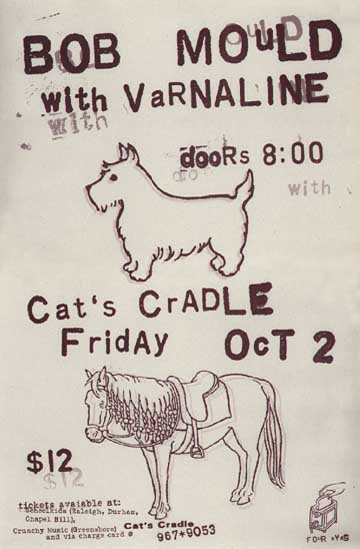 BOB MOULD
with VARNALINE
dooRs 8:00
with
Cat's CrADLE
FridAy OcT 2
$12
tickets avaiable at:
Schoolkids (Raleigh, Durham,
Chapel Hill),
Crunchy Music (Greensboro)
and via charge card @
Cat's Cradle
967*9053
FOUR EYES